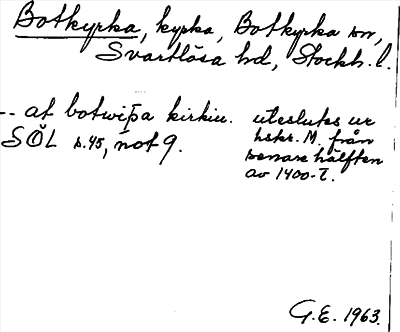 Botkyrka, kyrka, Botkyrka sn,
Svartlösa hd, Stockh. l.
-- at botwiþa kirkiu.
SÖL s. 45, not 9.
uteslutes ur
hskr. M. från
senare hälften
av 1400-t.
G.E. 1963.